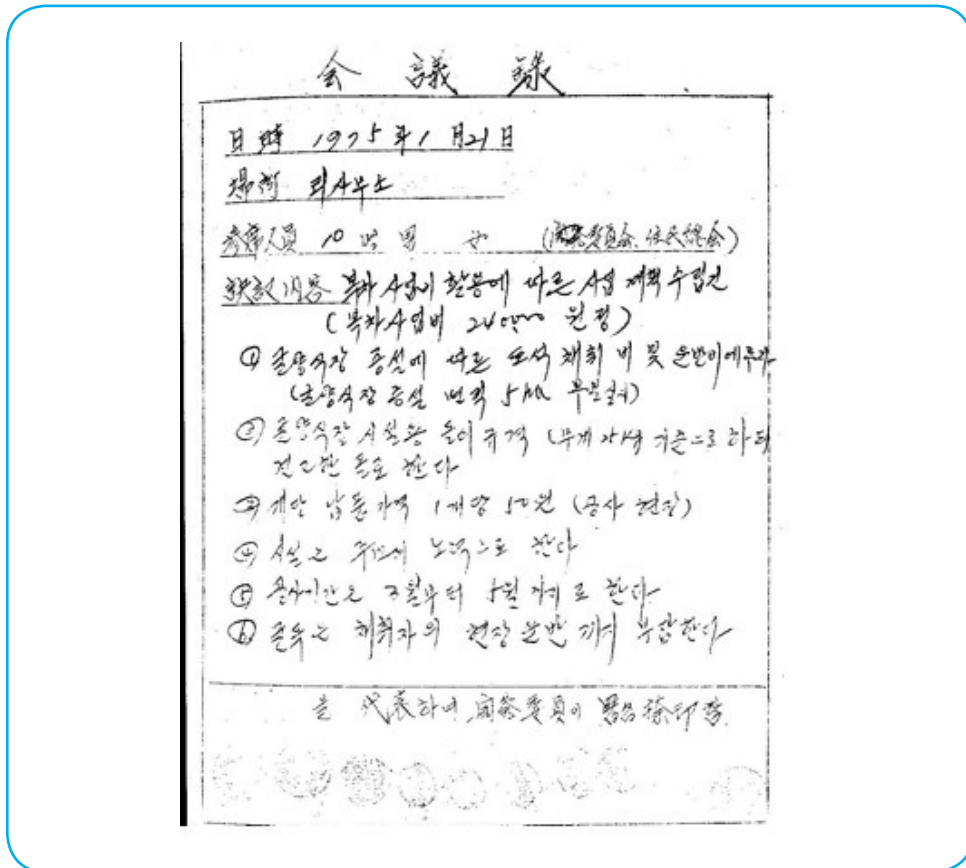 会議錄
日時 1975年1月21日
場所 리사무소
参席人員 10名 男 女 (開発委員会、住民總会)
決議内容 복차사업비 활용에 따른 사업 계획 수립건
(복차사업비 240000 원정)
① 굴양식장 증설에 따른 토석 채취 비 및 운반비에 투자
(굴양식장 증설 면적 5ha 부분설치)
② 굴양식장 시설용 돌이 규격 (무게 25kg 기준으로 하되
견고한 돌로 한다
③ 개당 납품가격 1개당 50원 (공사 현장)
④ 시설은 주민이 노력으로 한다
⑤ 공사기간은 3월부터 5월까지로 한다
⑥ 굴육은 채취자의 현장 운반까지 부담한다
을 代表하여 開発委員이 署名捺印함.